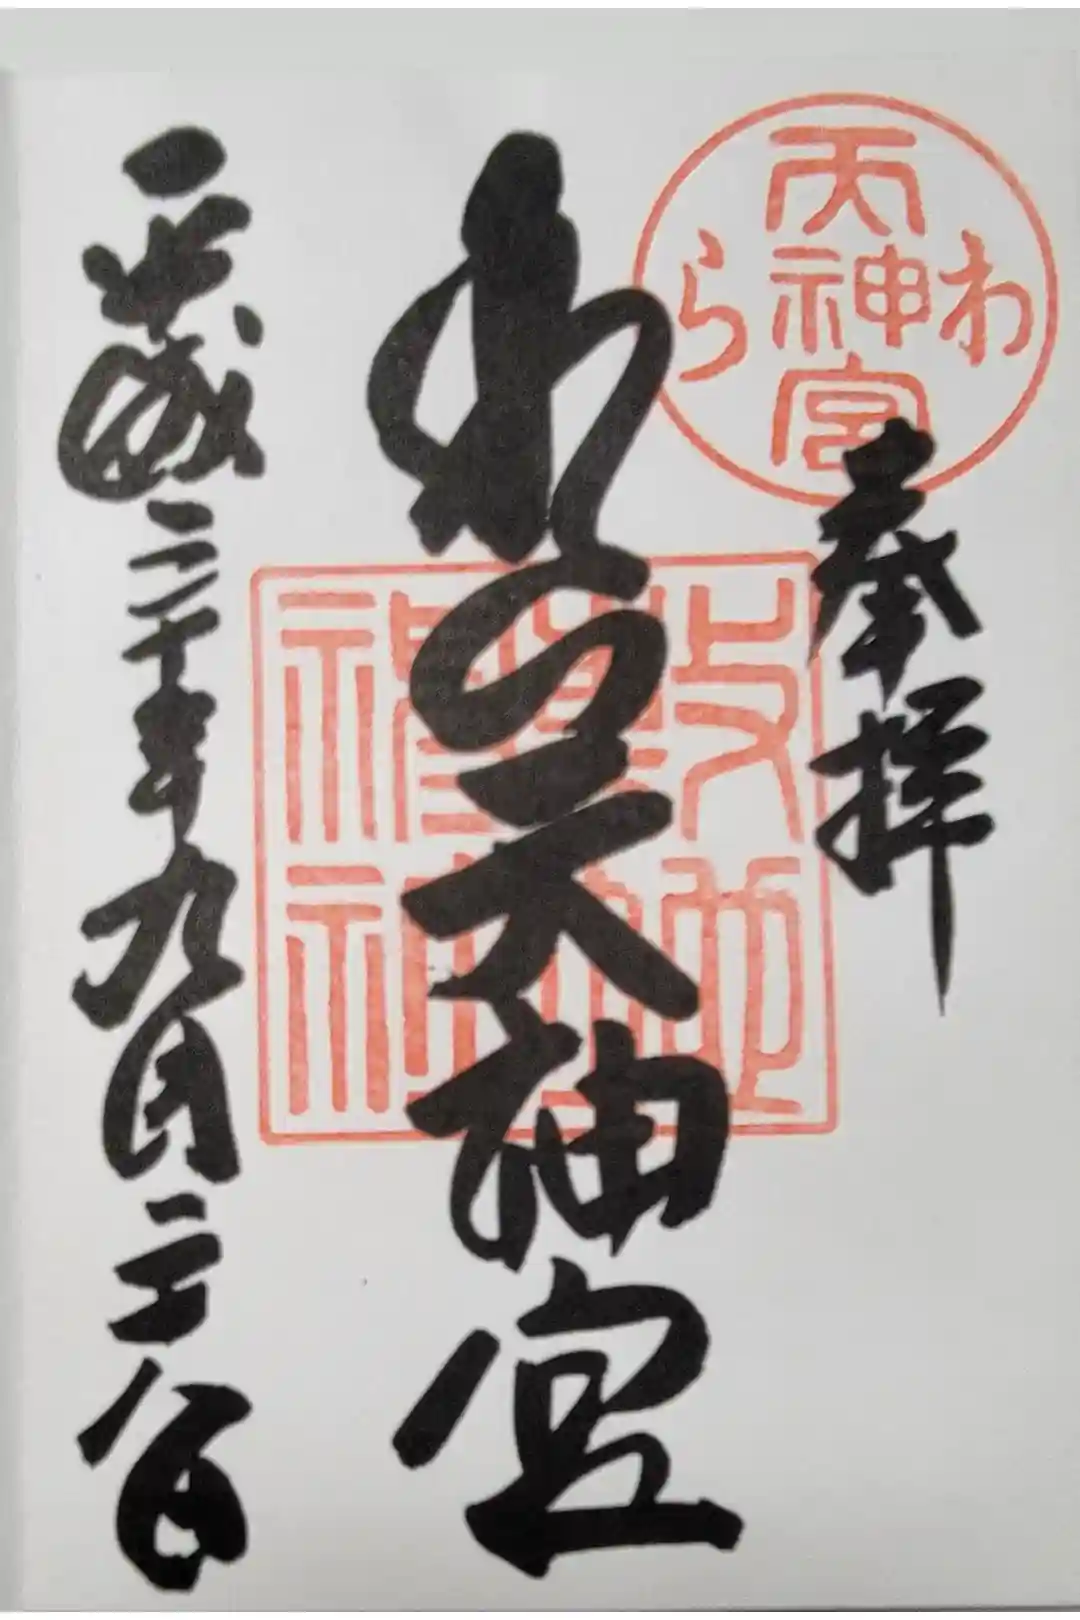 奉拝
わら天神宮
平成三十年九月二十八日
わら天神宮
敷地神社